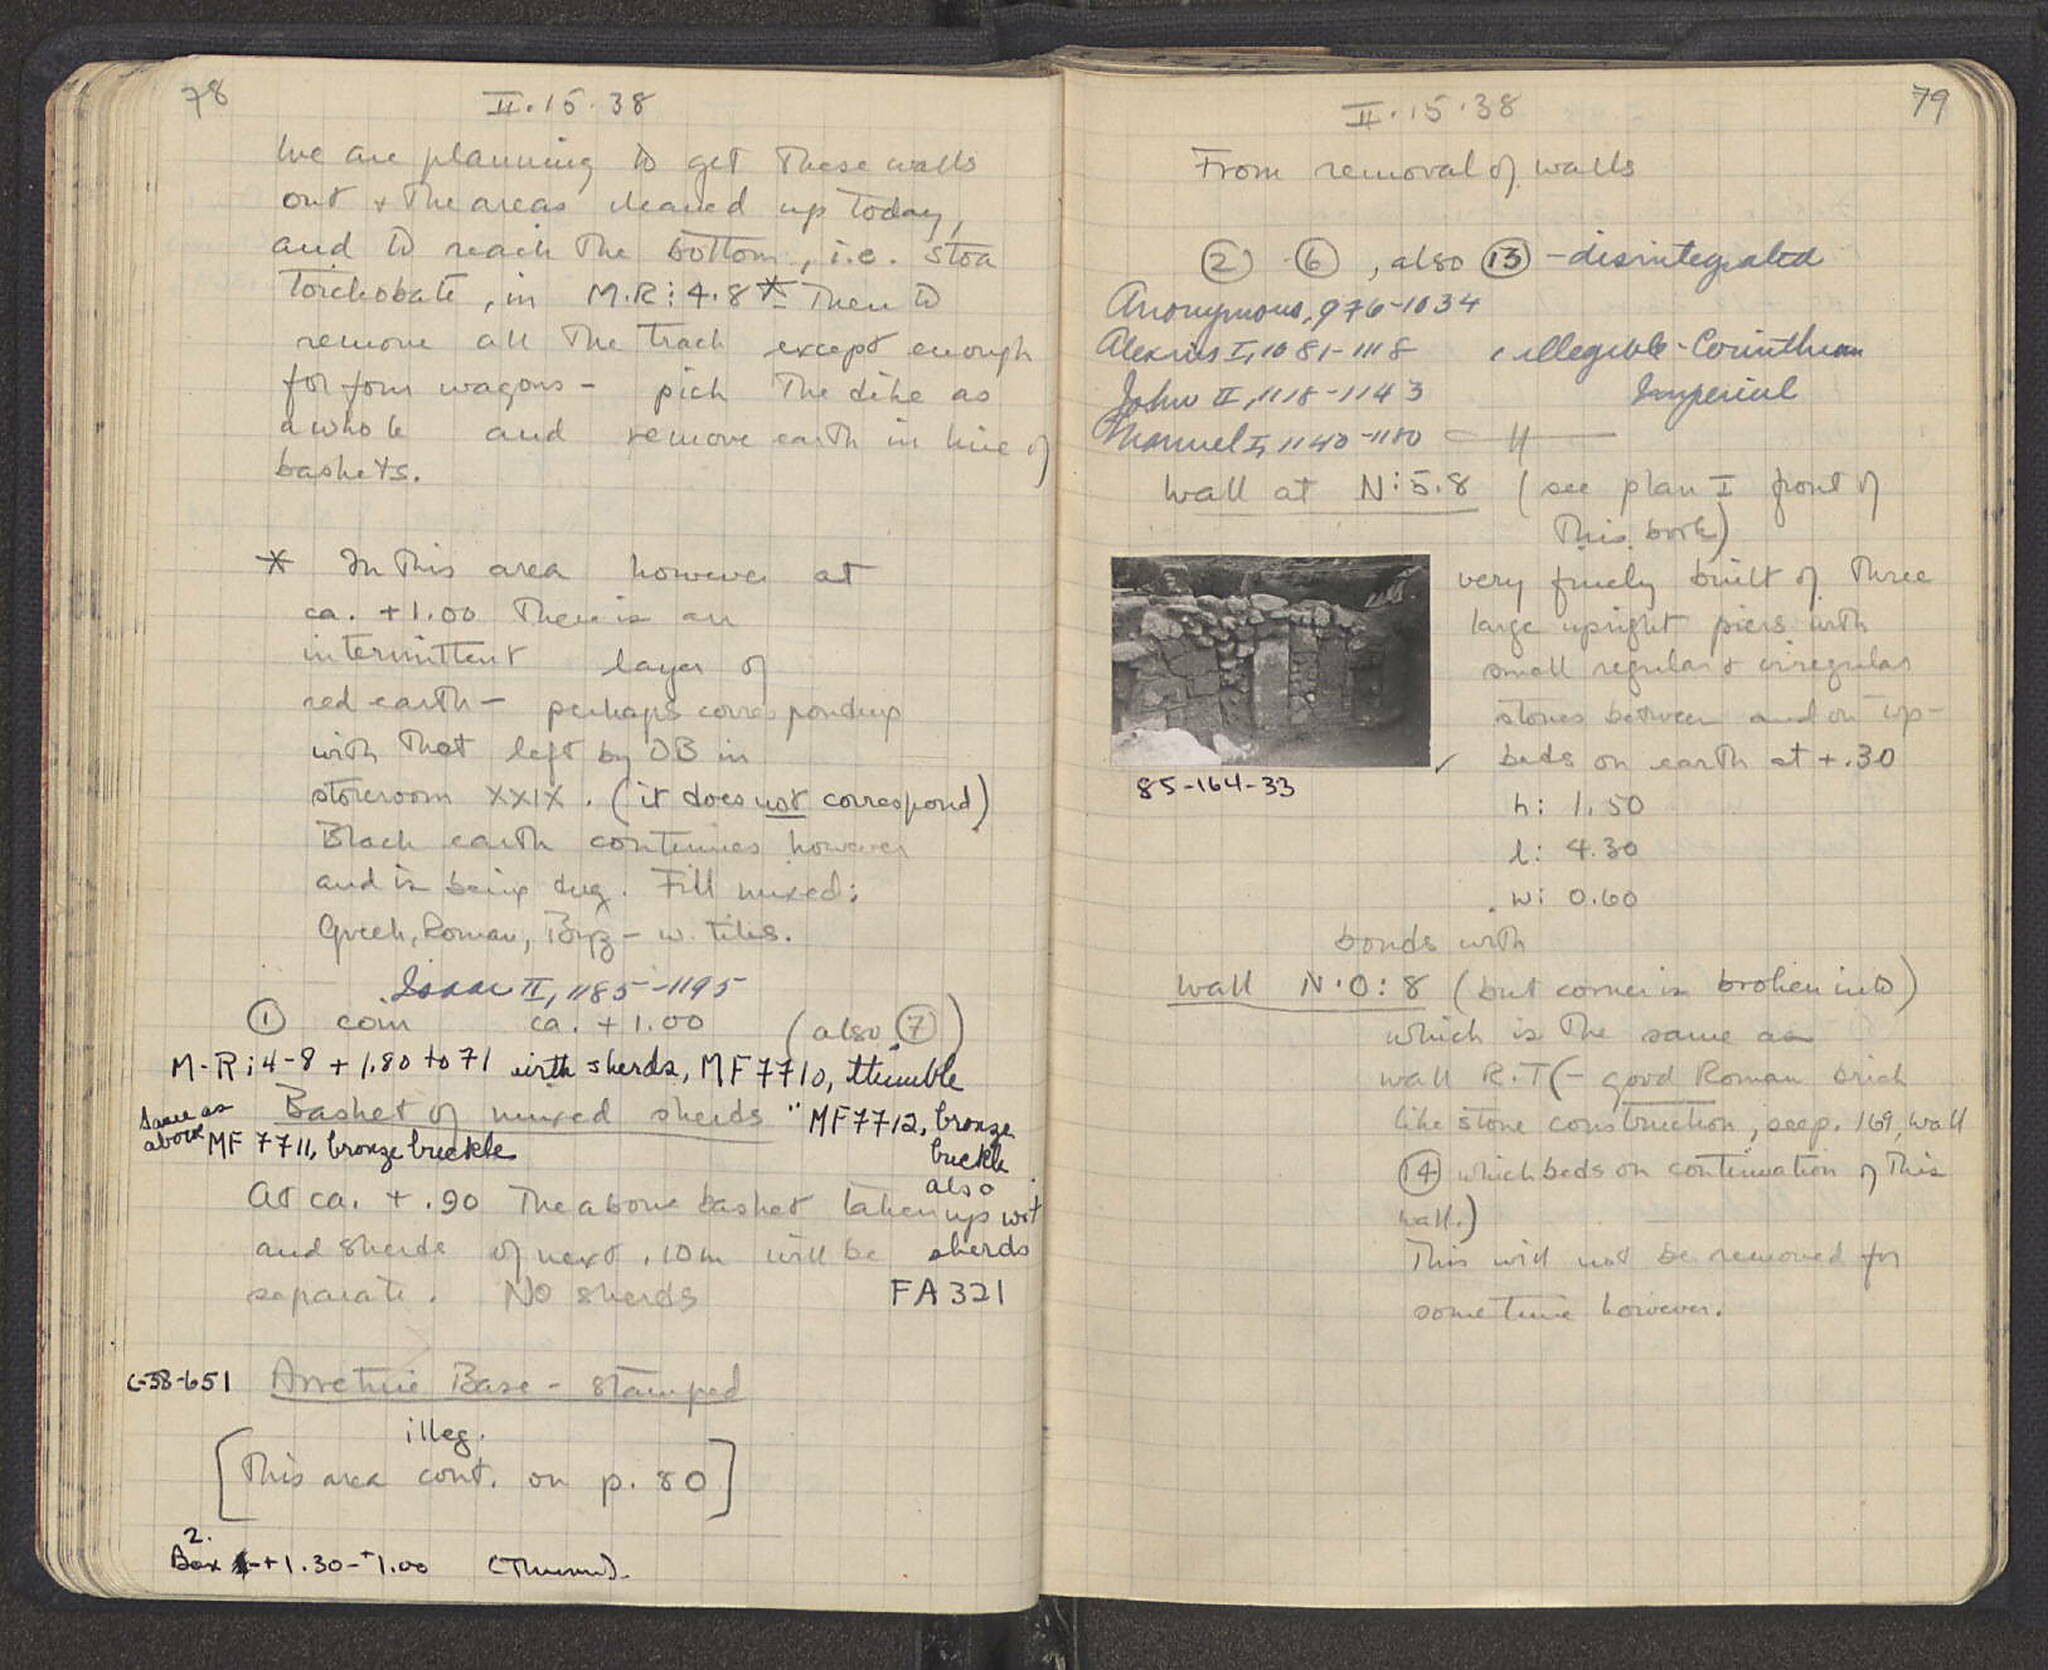 78
II.15.38
We are planning to get these walls
out + the areas cleaned up today,
and to reach the bottom, i.e. stoa
toichobate, in M.R:4.8* Then to
remove all the track except enough
for four wagons – pick the dike as
a whole and remove earth in line of
baskets.
* In this area however at
ca. +1.00 There is an
intermittent layer of
red earth – perhaps corresponding
with that left by OB in
storeroom XXIX. (it does not correspond)
Black earth continues however
and is being dug. Fill mixed:
Greek, Roman, Byz – w. tiles.
Isaac II, 1185-1195
① coin ca. +1.00 (also ⑦)
M-R:4-8 + 1.80 to 71 with sherds, MF7710, thimble
Same as above
Basket of mixed sherds " MF7712, bronze buckle
MF 7711, bronze buckle
also
At ca. +.90 The above basket taken up
and sherds of next .10m will be
separate. No sherds
sherds
FA321
C-38-651 Arretine Base – stamped
illeg.
[This area cont. on p. 80]
2.
Box +1.30-+1.00
79
II.15.38
From removal of walls
② ⑥, also ⑬ – disintegrated
Anonymous, 976-1034
Alexius I, 1081-1118 illegible-Corinthian
John II, 1118-1143 Imperial
Manuel I, 1143-1180 – " –
Wall at N:5.8 (see plan I front of
this book)
very finely built of three
large upright piers with
small regular & irregular
stones between and on top –
beds on earth at +.30
85-164-33
h: 1.50
l: 4.30
w: 0.60
bonds with
wall N.O:8 (but corner is broken into)
which is the same as
wall R.T (– good Roman brick
like stone construction, see p. 169, wall
⑭ which beds on continuation of this
wall.)
This will not be removed for
sometime however.